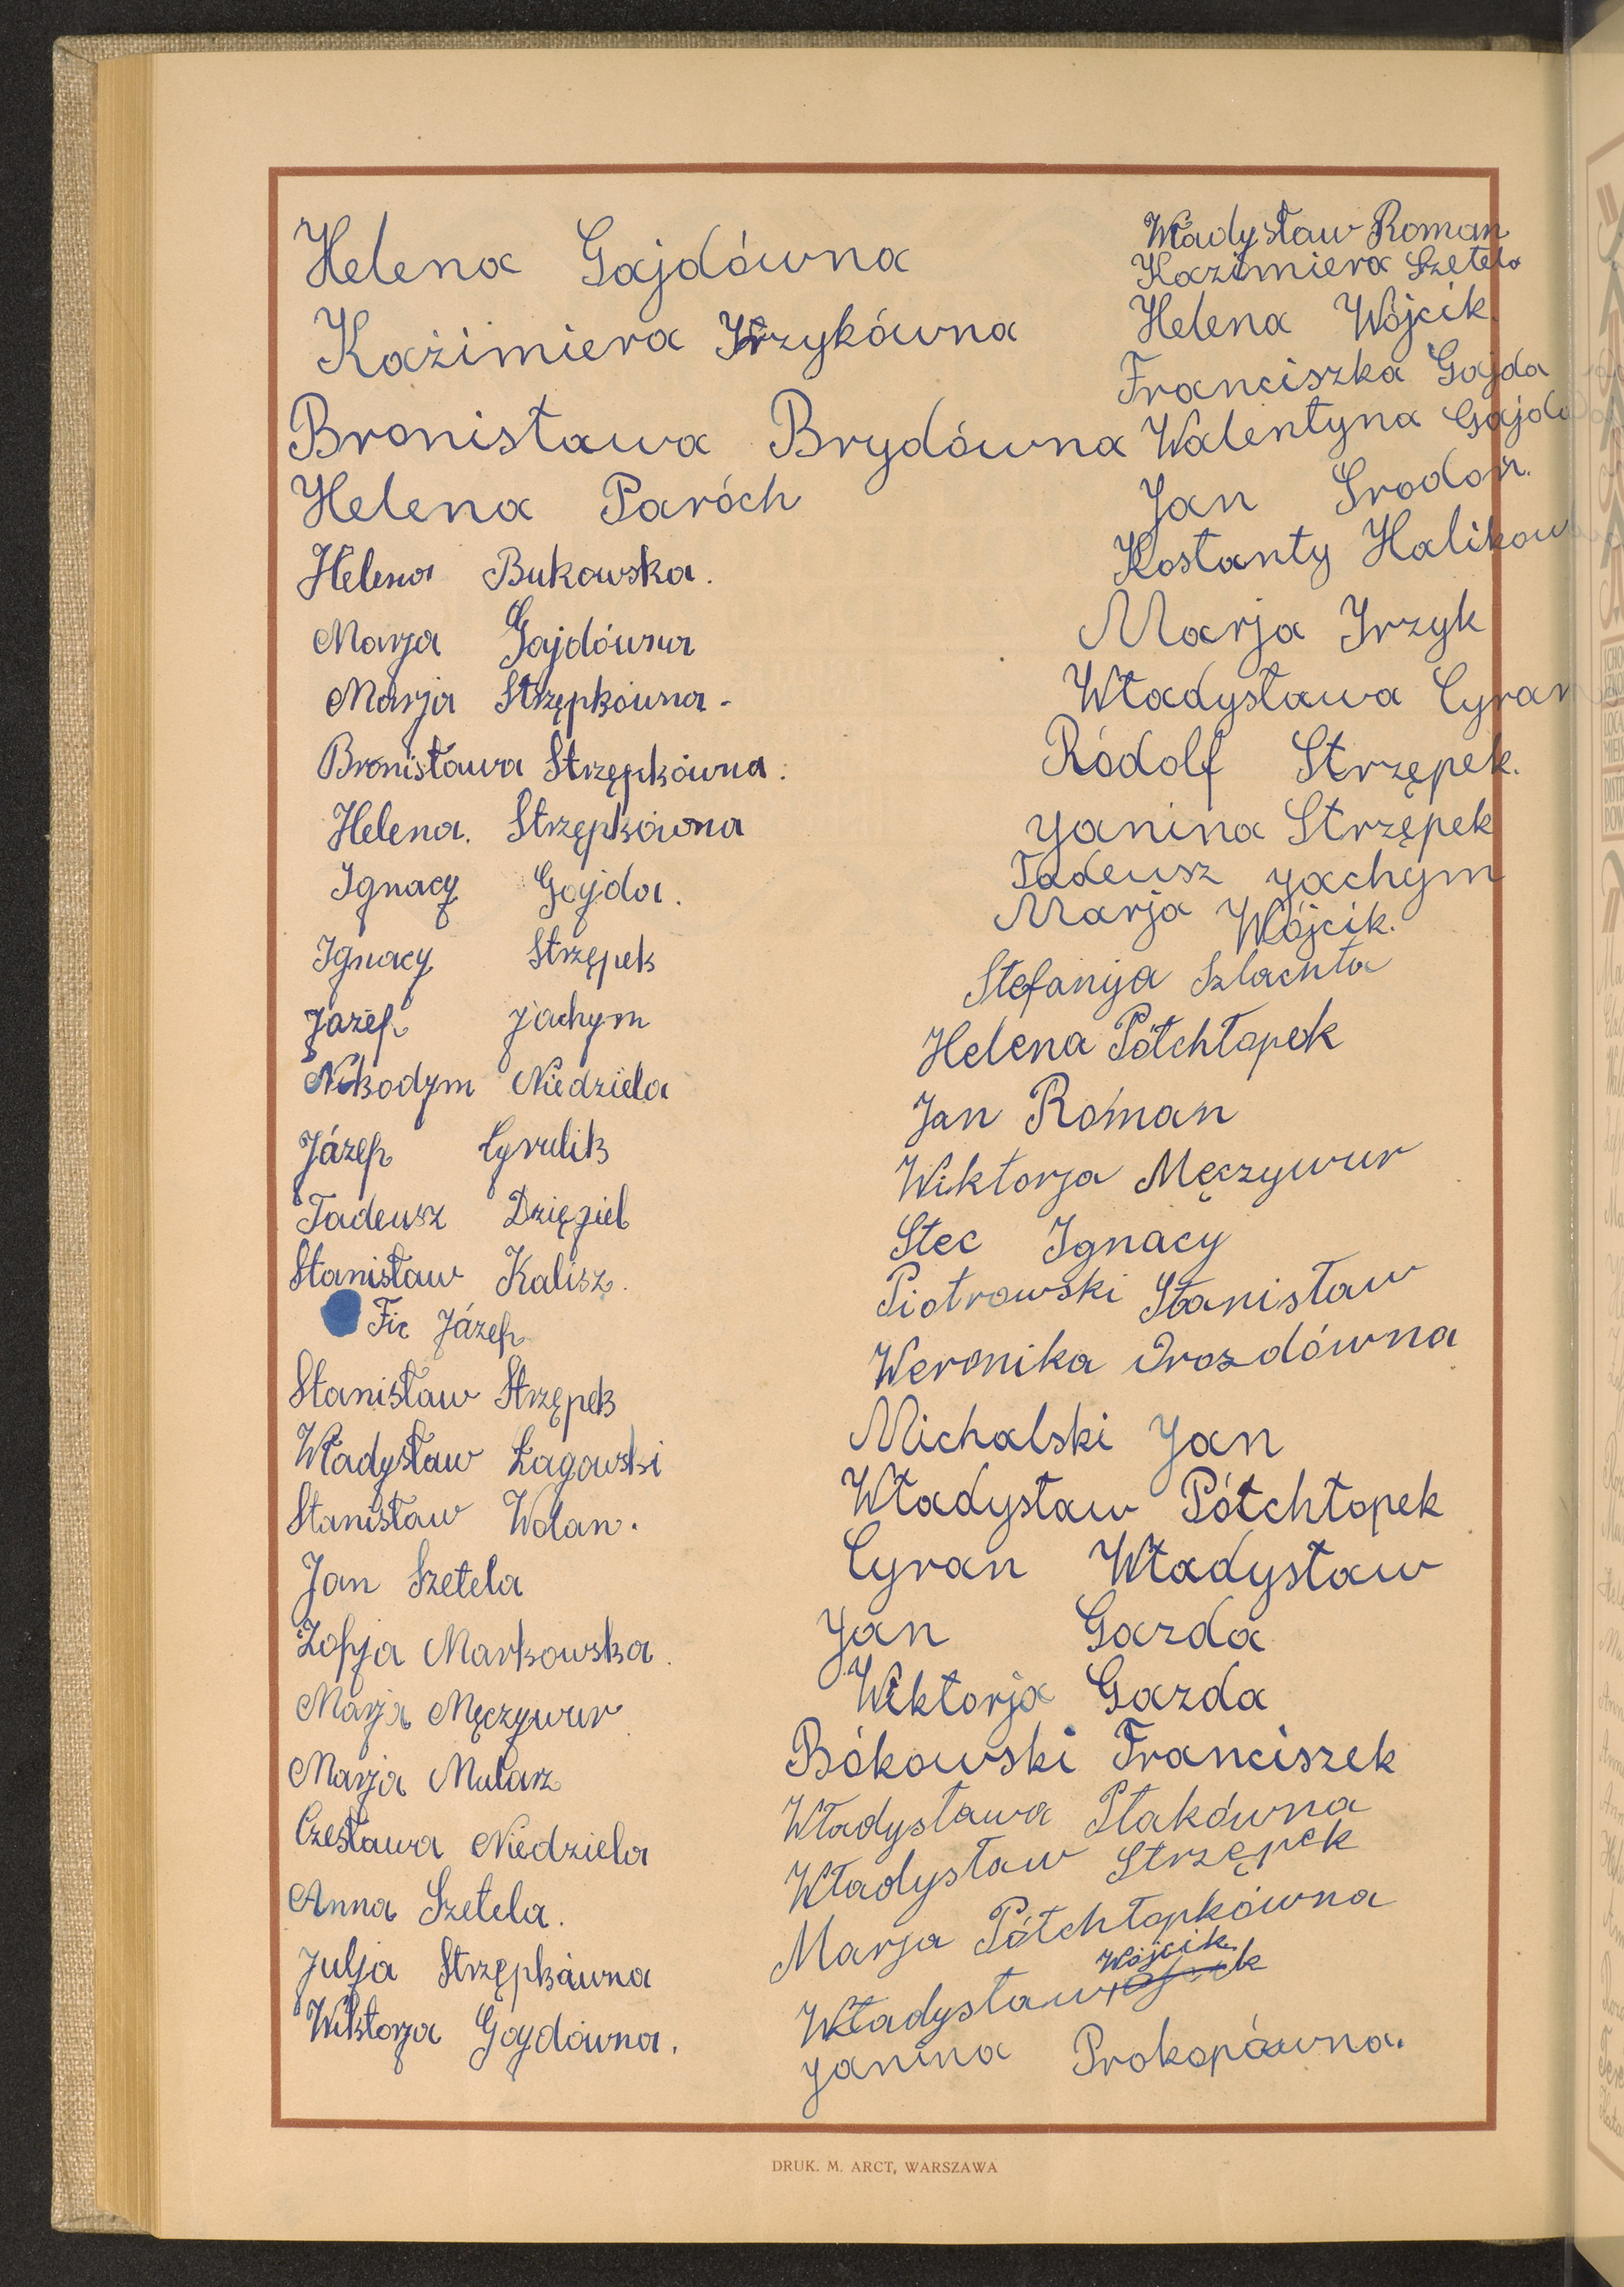 Helena Gajdówna
Kaźimiera Irzykówna
Bronisława Brydówna
Helena Paróch
Helena Bukowska.
Marja Gajdówna
Marja Strzępkówna-
Bronisława Strzępkówna.
Helena. Strzępkówna
Ignacy Gajda.
Ignacy Strzępek
Józef Jachym
Nikodym Niedziela
Józef Cyrulik
Tadeusz Dzięgiel
Stanisław Kalisz.
Fic Józef
Stanisław Strzępek
Władysław Łagowski
Stanisław Wolan.
Jan Szetela
Zofja Markowska.
Marja Męczywur
Marja Mularz
Czesława Niedziela
Anna Szetela.
Julja Strzępkówna
Wiktorja Gajdówna.
Władysław Roman
Kazimiera Szetela
Helena Wójcik.
Franciszka Gajda
Walentyna
Jan Srodoń.
Kostanty
Marja Irzyk
Władysława Cyran
Ródolf Strzępek.
Janina Strzępek
Tadeusz Jachym
Marja Wójcik.
Stefanija Szlachta
Helena Półchłopek
Jan Roman
Wiktorja Męczywur
Stec Ignacy
Piotrowski Stanisław
Weronika Drozdówna
Michalski Jan
Władysław Półchłopek
Cyran Władysław
Jan Gazda
Wiktorja Gazda
Bókowski Franciszek
Władysława Ptakówna
Władysław Strzępek
Marja Półchłopkówna
Wójcik
Władysław
Janina Prokopówna.
DRUK. M. ARCT, WARSZAWA